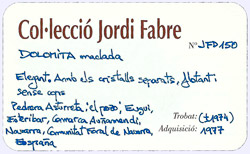 Col·lecció Jordi Fabre
Nº JFD150
DOLOMITA maclada
Elegant, Amb els cristalls separats, flotant
sense cops
Pedrera Asturreta "el pozo", Eugui,
Esteribar, Comarca Auñamendi,
Navarra, Comunitat Foral de Navarra,
Espanya
Trobat: (±1974)
Adquisició: 1977